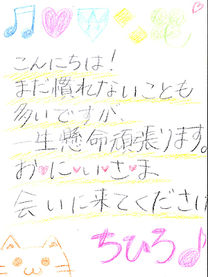 こんにちは!
まだ慣れないことも
多いですが、
一生懸命頑張ります。
お♡に♡い♡さ♡ま
会いに来てくださ
ちひろ♪